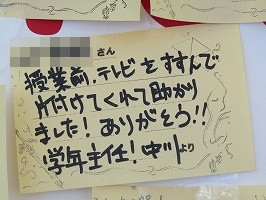 さん
授業前、テレビをすすんで
片付けてくれて助かり
ました！ありがとう!!
学年主任！中川より